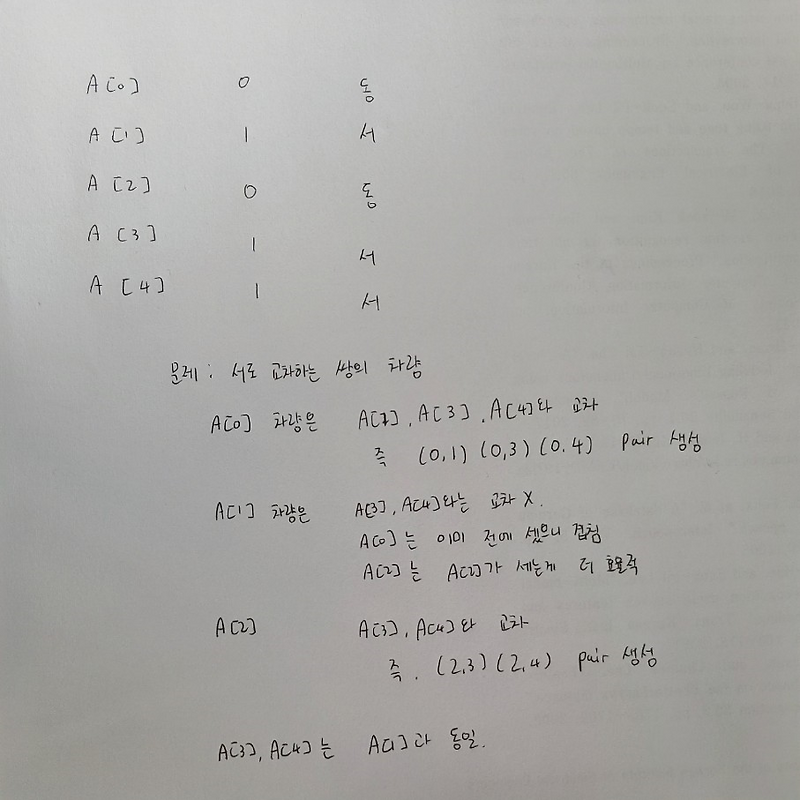 A[0] 0 동
A[1] 1 서
A[2] 0 동
A[3] 1 서
A[4] 1 서
문제 : 서로 교차하는 쌍의 차량
A[0] 차량은 A[1], A[3], A[4]와 교차
즉 (0,1) (0,3) (0.4) pair 생성
A[1] 차량은 A[3], A[4]와는 교차 X.
A[0]는 이미 전에 셌으니 겹침
A[2]는 A[2]가 세는게 더 효율적
A[2] A[3], A[4]와 교차
즉. (2,3) (2,4) pair 생성
A[3], A[4]는 A[1]과 동일.